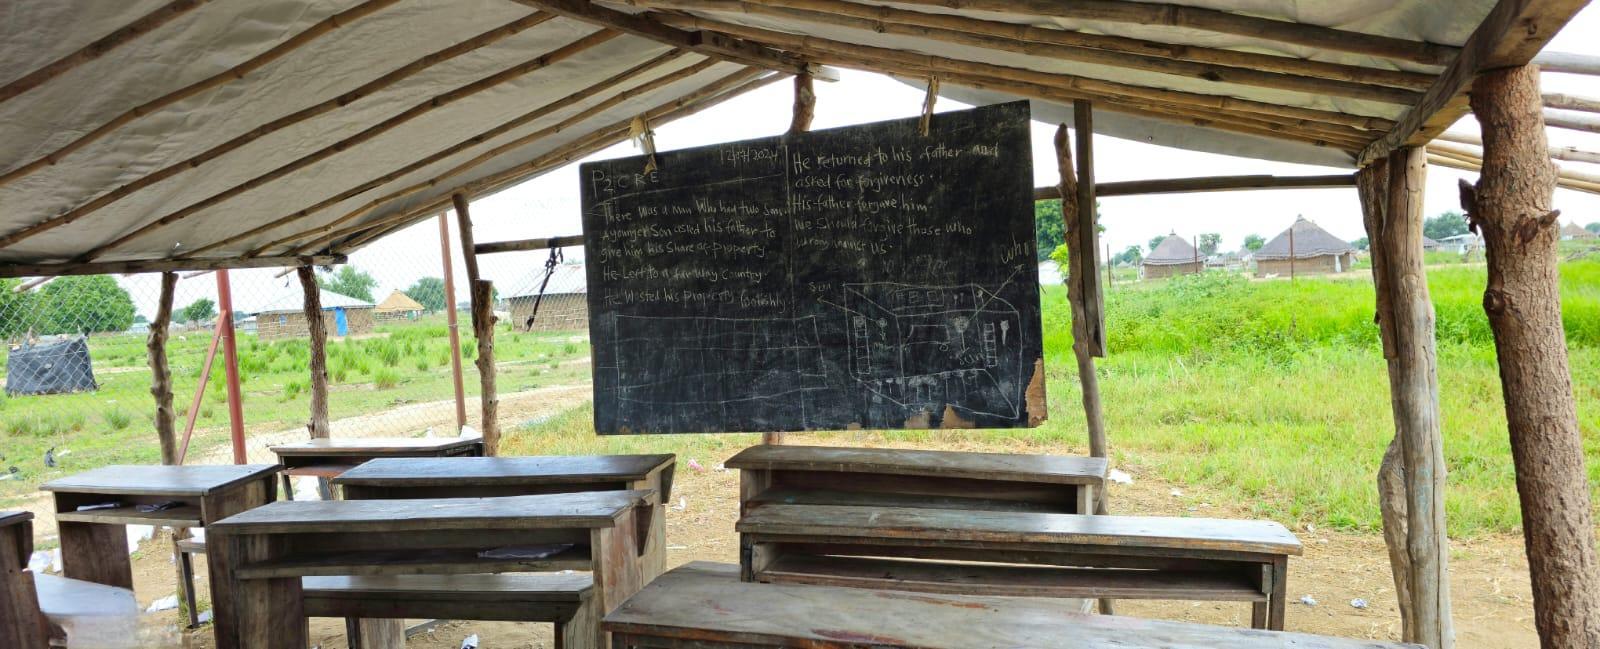 12/07/2024
P2 CRE
There was a man who had two sons
A younger son asked his father to
give him his share of property.
He Left to a far way country.
He wasted his property foolishly
He returned to his father and
asked for forgiveness.
His father forgave him
We should forgive those who
wrong against us.
Sun